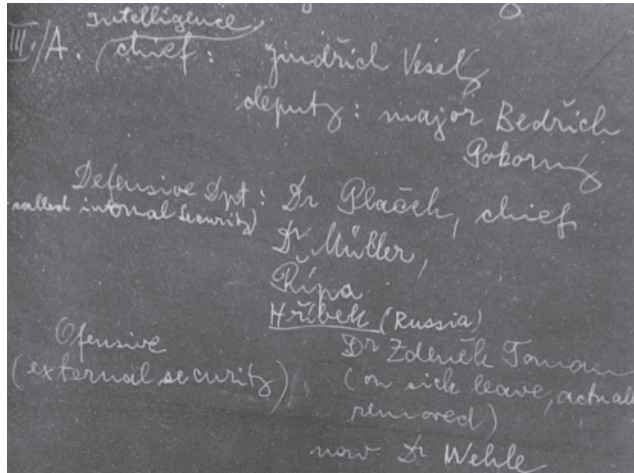 Intelligence
III./A. chief: Jindřich Veselý
deputy: major Bedřich
Pokorný
Defensive Dpt: Dr Plaček, chief
called internal security)
Dr. Müller,
Řípa
Hříbek (Russia)
Ofensive
(external security)
Dr Zdeněk Toman
(on sick leave, actuall
removed)
now Dr Wehle